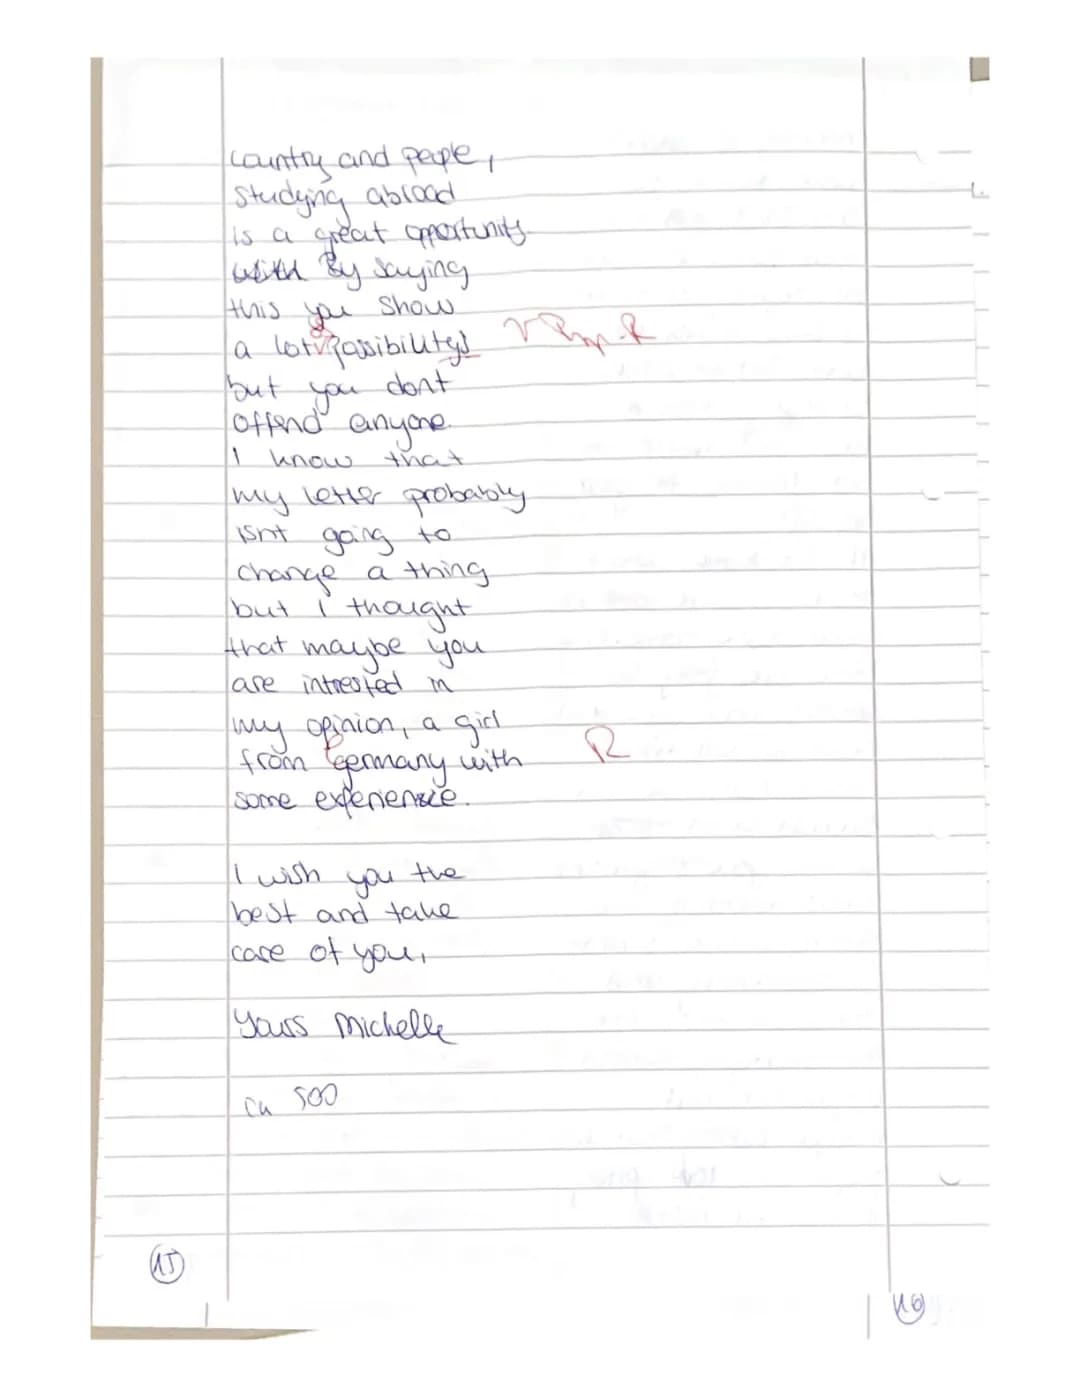 country and people,
Studying abroad
is a great opportunity
with By saying
this you show
a lot of possibilitys V R
but you dont
offend anyone.
I know that
my letter probably
isnt going to
change a thing
but I thought
that maybe you
are intrested in
my opinion, a girl
from Germany with R
some experience.
I wish you the
best and take
care of you,
Yours Michelle
ca 500
15
16